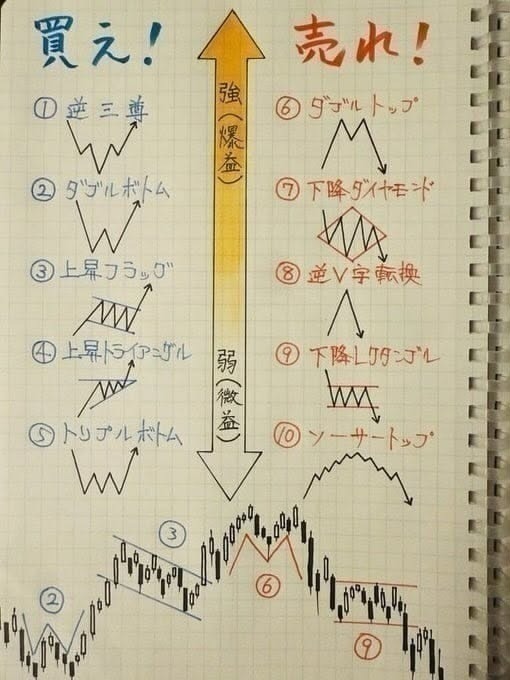 買え！
売れ！
①逆三尊
②ダブルボトム
③上昇フラッグ
④上昇トライアングル
⑤トリプルボトム
強（爆益）
弱（微益）
⑥ダブルトップ
⑦下降ダイヤモンド
⑧逆V字転換
⑨下降レクタングル
⑩ソーサートップ
②
③
⑥
⑨